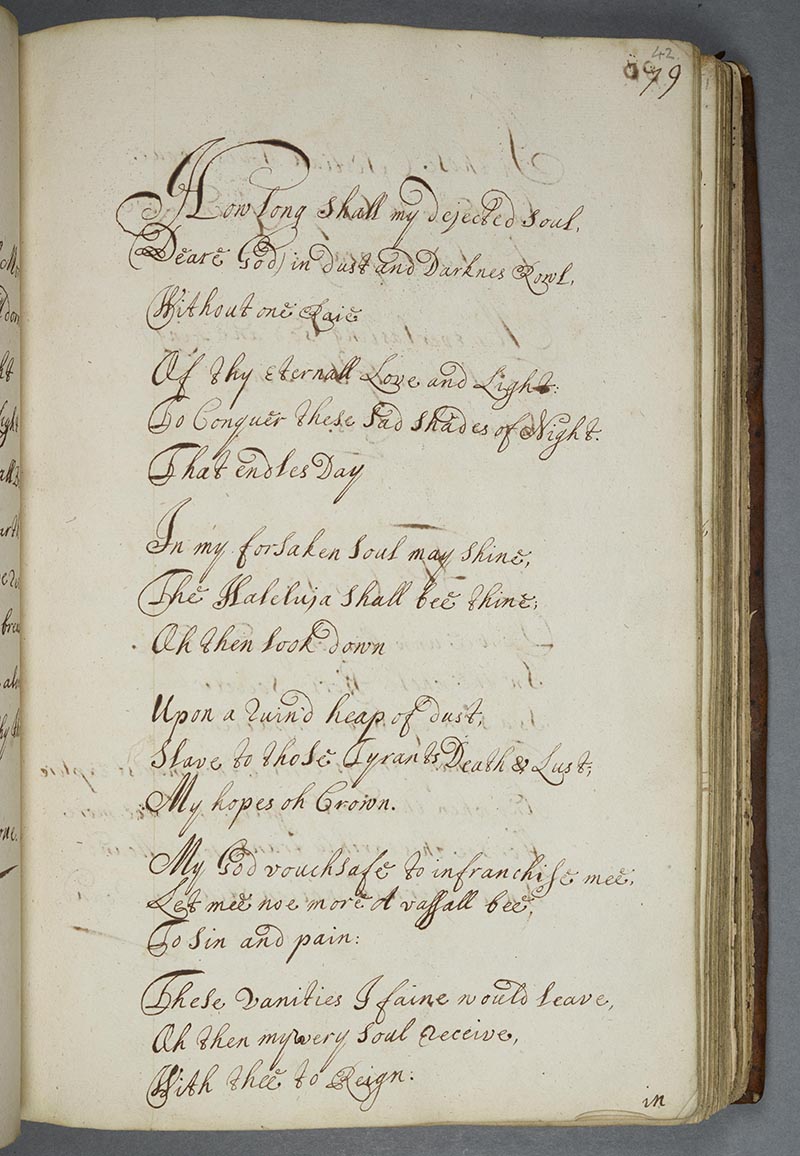 42
79
How long shall my dejected soul,
(Deare God) in dust and Darknes Rowl,
Without one Raie
Of thy eternall Love and Light:
To Conquer these sad shades of Night.
That endles Day
In my forsaken soul may shine,
The Haleluja shall bee thine;
Oh then look down
Upon a ruin'd heap of dust,
Slave to those Tyrants Death & Lust;
My hopes oh Crown.
My God vouchsafe to infranchise mee,
Let mee noe more A vassall bee,
To sin and pain:
These vanities I faine would leave,
Oh then my very soul receive,
With thee to Reign.
in